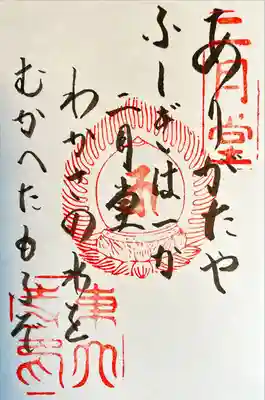 二月堂
ありがたや
ふしぎは一か
二月堂
わかさの水を
むかへたもふぞ